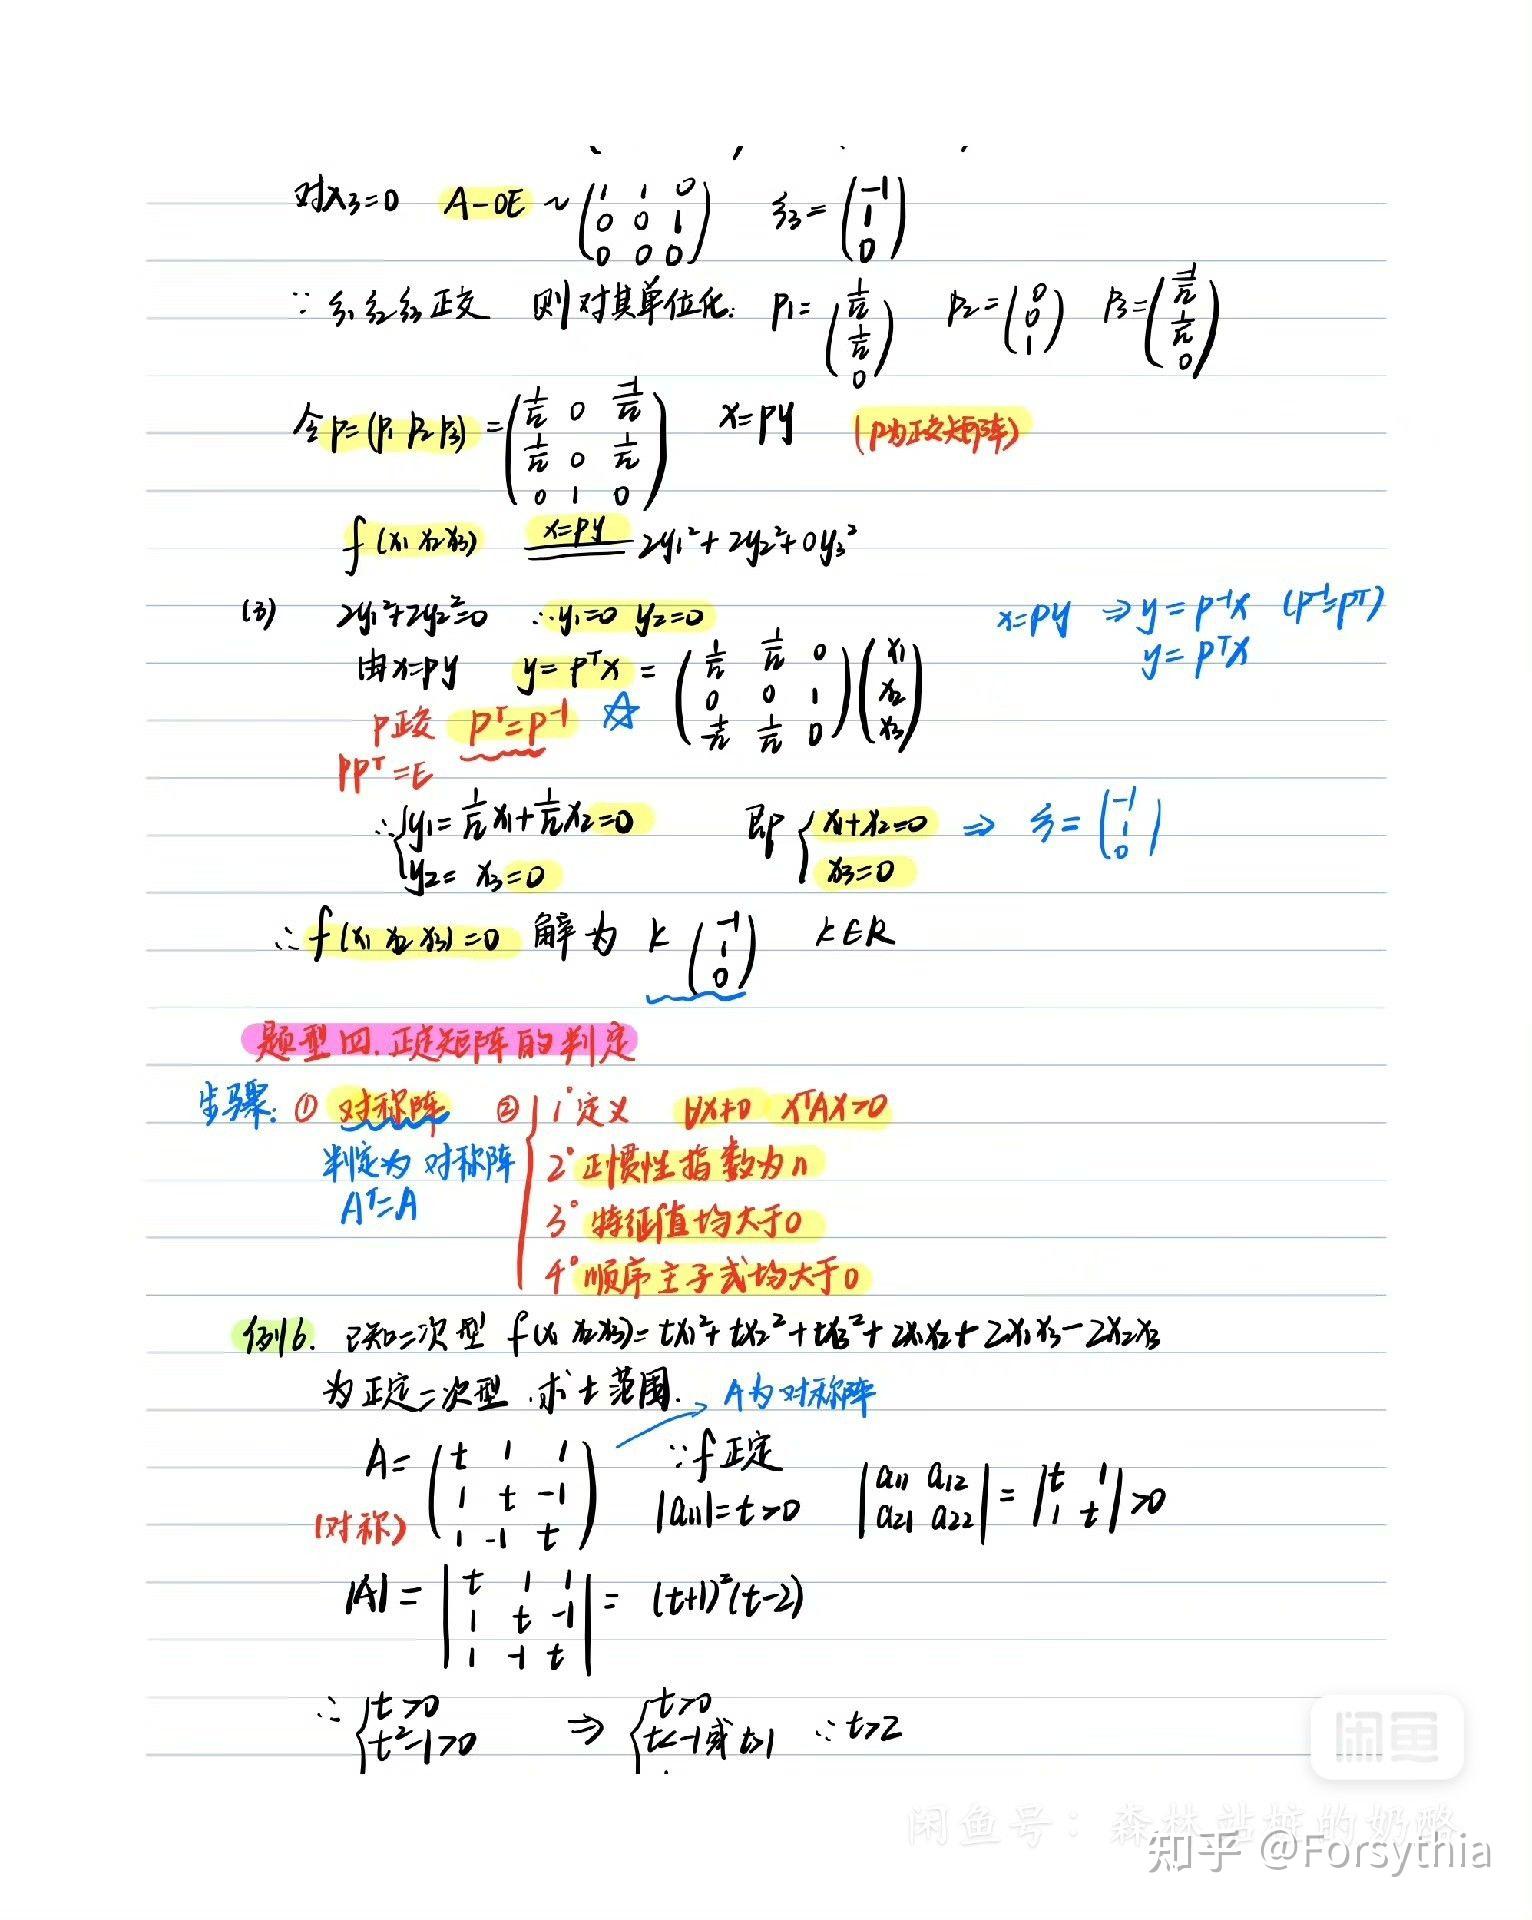 对λ₃=0 A-0E ~ (1 1 0; 0 0 1; 0 0 0) ξ₃=(-1; 1; 0)
∵ξ₁ξ₂ξ₃正交 则对其单位化. P₁=(1/√2; 1/√2; 0) P₂=(0; 0; 1) P₃=(-1/√2; 1/√2; 0)
令P=(P₁ P₂ P₃)=(1/√2 0 -1/√2; 1/√2 0 1/√2; 0 1 0) x=Py (P为正交矩阵)
f(x₁ x₂ x₃) x=Py 2y₁²+2y₂²+0y₃²
(3) 2y₁²+2y₂²=0 ∴y₁=0 y₂=0 x=Py ⇒ y=P⁻¹x (P⁻¹=Pᵀ)
y=Pᵀx
由x=Py y=Pᵀx=(1/√2 1/√2 0; 0 0 1; -1/√2 1/√2 0)(x₁; x₂; x₃)
P正交 Pᵀ=P⁻¹ ☆
PPᵀ=E
∴{y₁=1/√2x₁+1/√2x₂=0 即{x₁+x₂=0 ⇒ ξ=(-1; 1; 0)
y₂=x₃=0 x₃=0
∴f(x₁ x₂ x₃)=0 解为 k(-1; 1; 0) k∈R
题型四.正定矩阵的判定
步骤: ① 对称阵 ② 1°定义 ∀x≠0 xᵀAx>0
判定为对称阵 2°正惯性指数为n
Aᵀ=A 3°特征值均大于0
4°顺序主子式均大于0
例6. 已知二次型 f(x₁ x₂ x₃)=tx₁²+tx₂²+tx₃²+2x₁x₂+2x₁x₃-2x₂x₃
为正定二次型.求t范围. A为对称阵
A=(t 1 1; 1 t -1; 1 -1 t) ∵f正定
(对称) |a₁₁|=t>0 |a₁₁ a₁₂; a₂₁ a₂₂|=|t 1; 1 t|>0
|A|=|t 1 1; 1 t -1; 1 -1 t|=(t+1)²(t-2)
∴{t>0 ⇒ {t>0
t²-1>0 t<-1或t>1 ∴t>2
闲鱼
闲鱼号：森林站桩的奶酪
知乎 @Forsythia